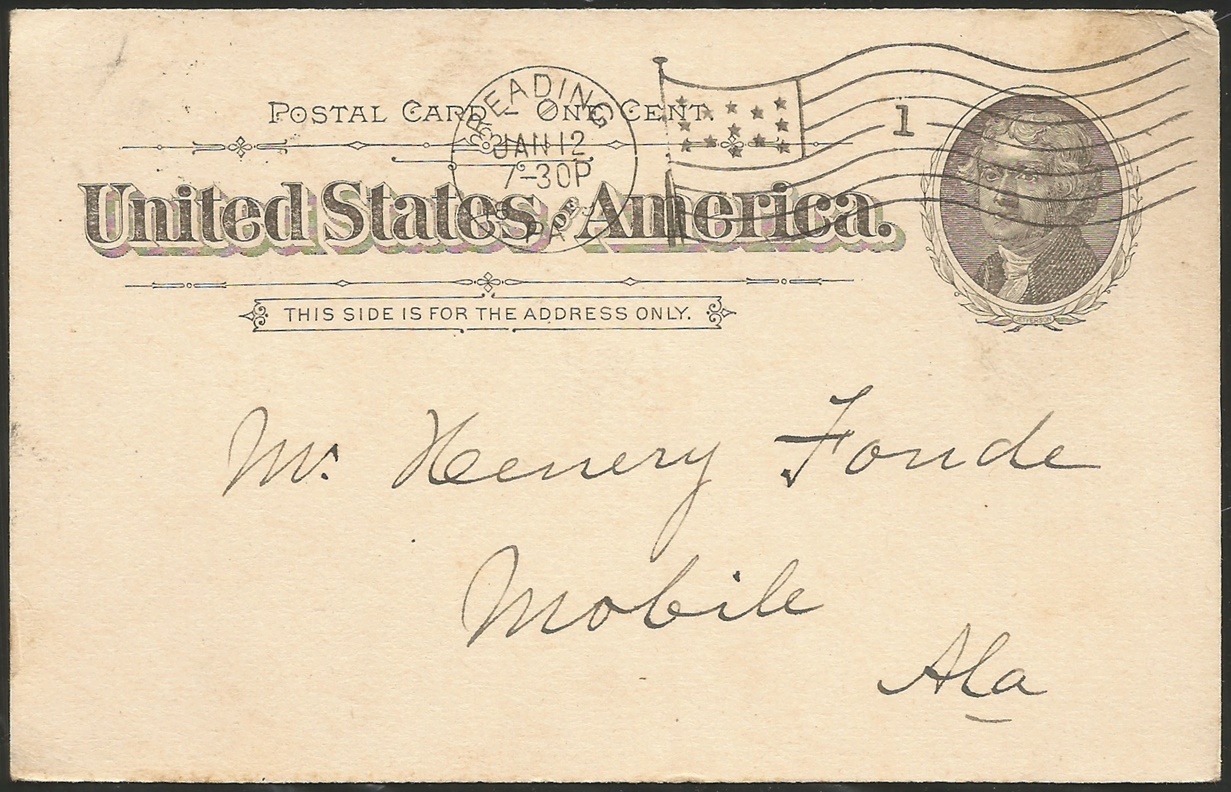 POSTAL CARD – ONE CENT
READING
JAN 12
7-30P
PA
1
United States OF America.
THIS SIDE IS FOR THE ADDRESS ONLY.
JEFFERSON
Mr. Heenery Fonde
Mobile
Ala